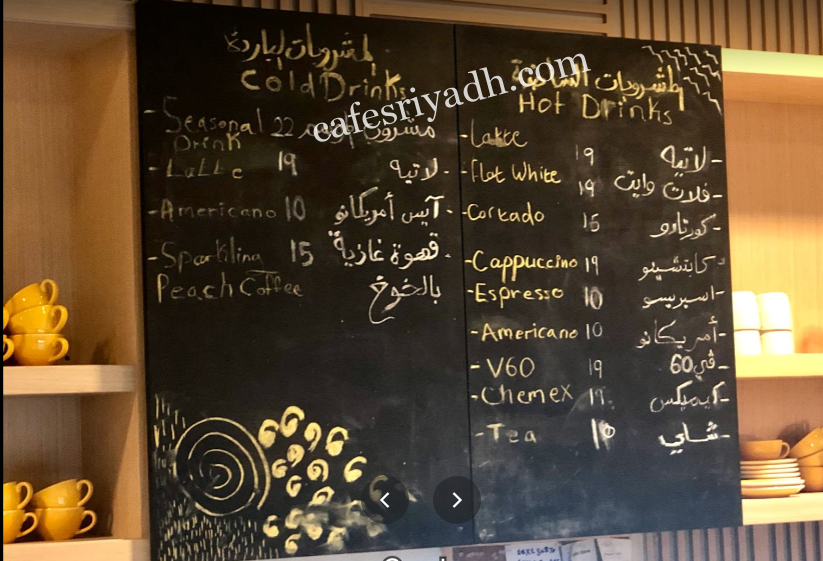 المشروبات الباردة
Cold Drinks
- Seasonal Drink 22 مشروب الموسم
- Latte 19 لاتيه -
- Americano 10 آيس أمريكانو -
- Sparkling 15 قهوة غازية -
Peach Coffee بالخوخ
cafesriyadh.com
المشروبات الساخنة
Hot Drinks
- Latte 19 لاتيه -
- Flat White 19 فلات وايت -
- Cortado 15 كورتادو -
- Cappuccino 19 كابتشينو -
- Espresso 10 اسبريسو -
- Americano 10 أمريكانو -
- V60 19 في 60 -
- Chemex 19 كيمكس -
- Tea 10 شاي -